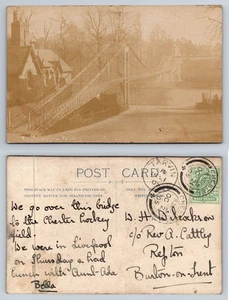 POST CARD
TARVIN
We go over this bridge
to the Chester hockey
field.
We were in Liverpool
on Thursday & had
lunch with Aunt Ada
Bella
W. H. D. Jackson
c/o Rev A. Cattley
Repton
Burton-on-Trent